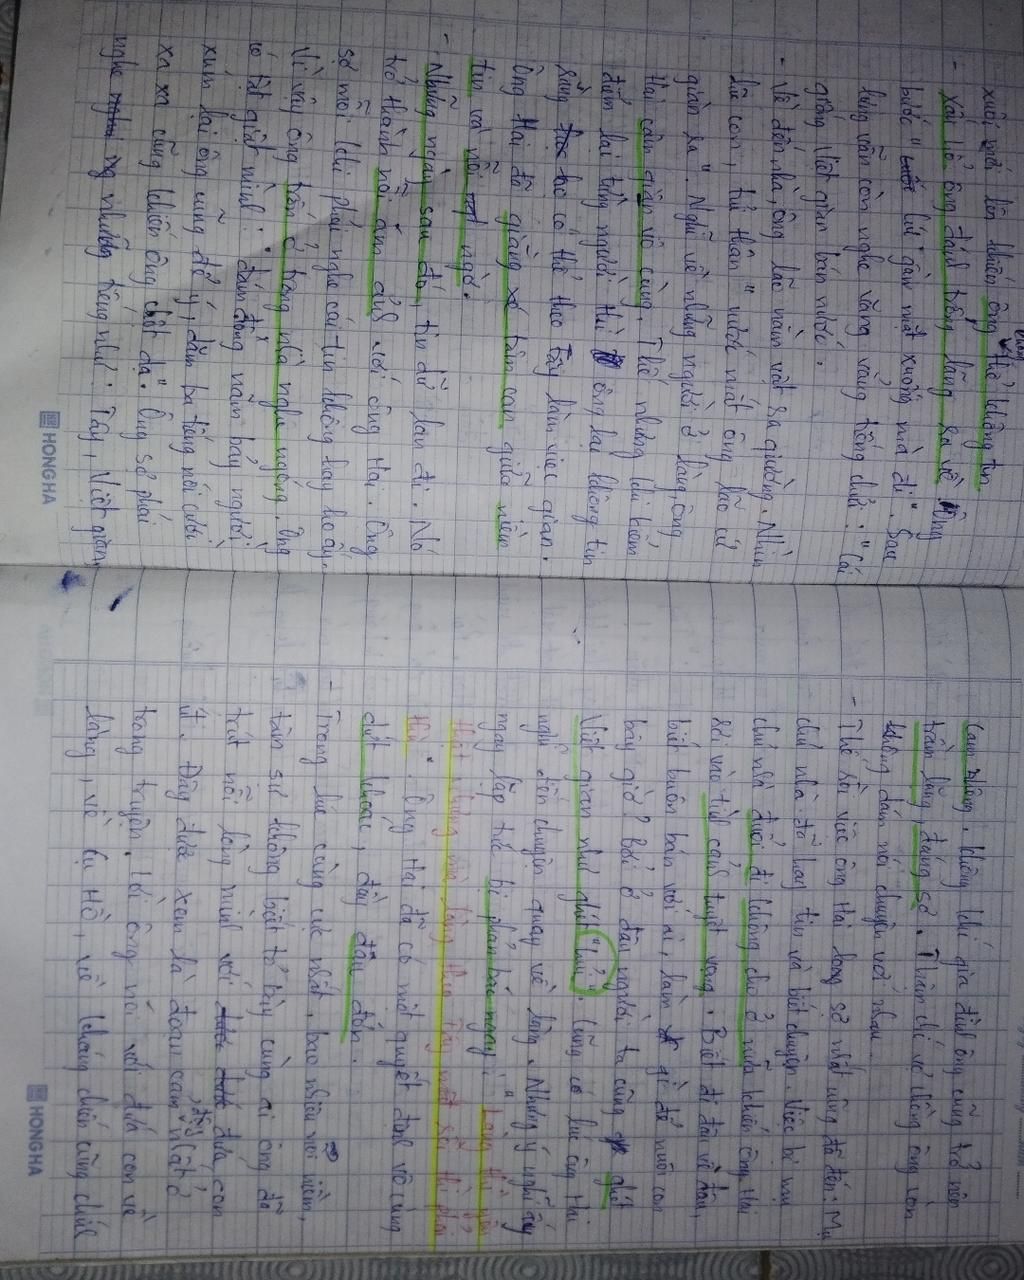 xuôi mới lên khiến ông không thể không tin
- Xấu hổ ông đánh trống lảng ra về. Ông
bước "cúi gằm mặt xuống mà đi". Sau
lưng vẫn còn nghe văng vẳng tiếng chửi: "Cái
giống Việt gian bán nước".
- Về đến nhà, ông lão nằm vật ra giường. Nhìn
lũ con, tủi thân "nước mắt ông lão cứ
giàn ra". Nghĩ về những người ở làng, ông
Hai căm giận vô cùng. Thế nhưng khi kiểm
điểm lại từng người thì ông lại không tin
rằng họ có thể theo Tây làm việc gian.
Ông Hai đã giằng xé tâm can giữa niềm
tin và nỗi ngờ.
- Những ngày sau đó, tin dữ lan đi. Nó
trở thành nỗi ám ảnh với ông Hai. Ông
sợ mỗi khi phải nghe cái tin không hay ho ấy.
Vì vậy ông trốn ở trong nhà nghe ngóng. Ông
lo lắng giật mình: "đám đông năm bảy người
xúm lại ông cũng để ý, dăm ba tiếng nói cười
xa xa cũng khiến ông chột dạ". Ông sợ phải
nghe những tiếng như: Tây, Việt gian,
HONG HA
cam nhông. Không khí gia đình ông cũng trở nên
trầm lặng, đáng sợ. Thậm chí vợ chồng ông còn
không dám nói chuyện với nhau.
- Thế rồi việc ông Hai lo sợ nhất cũng đã đến: Mụ
chủ nhà đã hay tin và biết chuyện. Việc bị mụ
chủ nhà đuổi đi không cho ở nữa khiến ông Hai
rơi vào tình cảnh tuyệt vọng. Biết đi đâu về đâu,
biết buôn bán với ai, làm gì để nuôi con
bây giờ? Bởi ở đâu người ta cũng ghét
Việt gian như ghét "hủi". Cũng có lúc ông Hai
nghĩ đến chuyện quay về làng. Nhưng ý nghĩ ấy
ngay lập tức bị phản bác ngay: "Làng thì yêu
thật nhưng mà làng theo Tây mất rồi thì phải
thù". Ông Hai đã có một quyết định vô cùng
dứt khoát, đầy đau đớn.
- Trong lúc cùng cực nhất, bao nhiêu nỗi niềm,
tâm sự không biết tỏ bày cùng ai ông đã
trút nỗi lòng mình với đứa con
út. Đây được xem là đoạn cảm động nhất
trong truyện. Lời ông nói với đứa con về
làng, về Cụ Hồ, về kháng chiến cũng chính
HONG HA